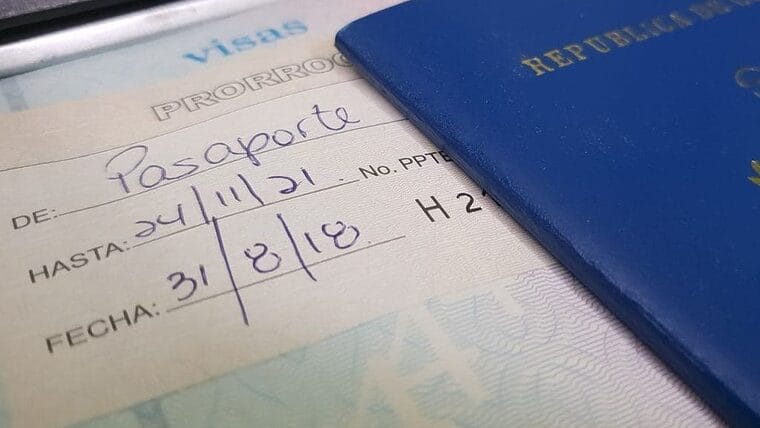 visas
PRORROG
DE: Pasaporte
HASTA: 24/11/21 No. PPTE
FECHA: 31/8/18 H 2
REPUBLICA DE